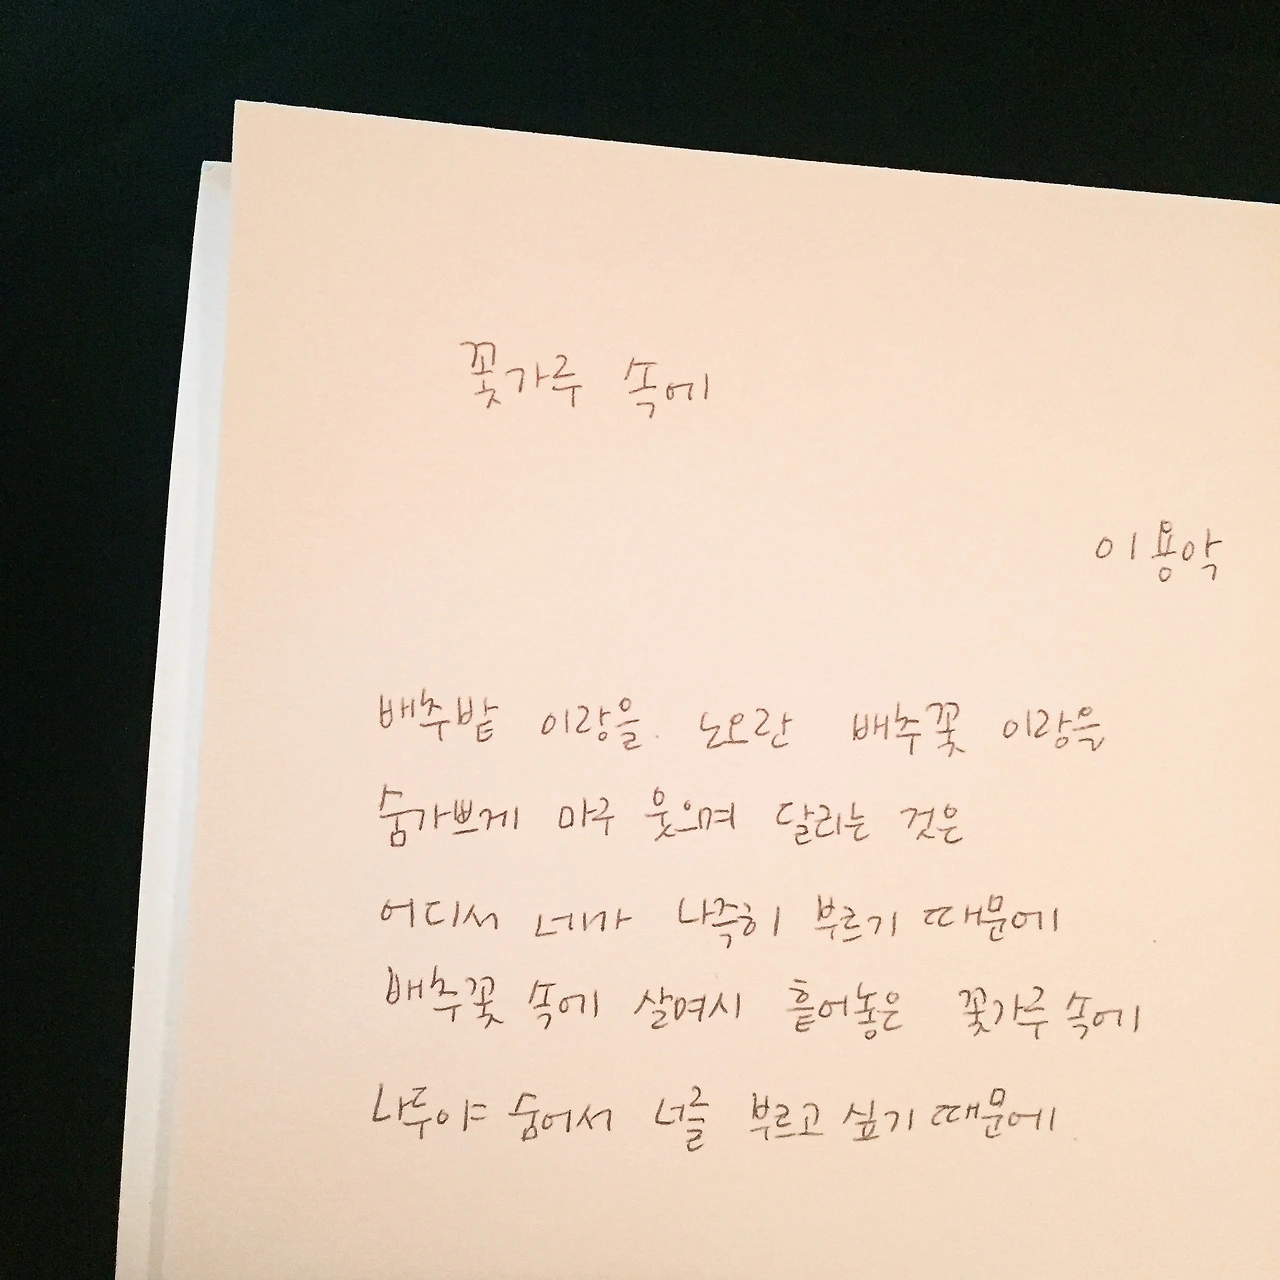 꽃가루 속에
이용악
배추밭 이랑을 노오란 배추꽃 이랑을
숨가쁘게 마구 웃으며 달리는 것은
어디서 네가 나즉히 부르기 때문에
배추꽃 속에 살며시 흩어놓은 꽃가루 속에
나두야 숨어서 너를 부르고 싶기 때문에